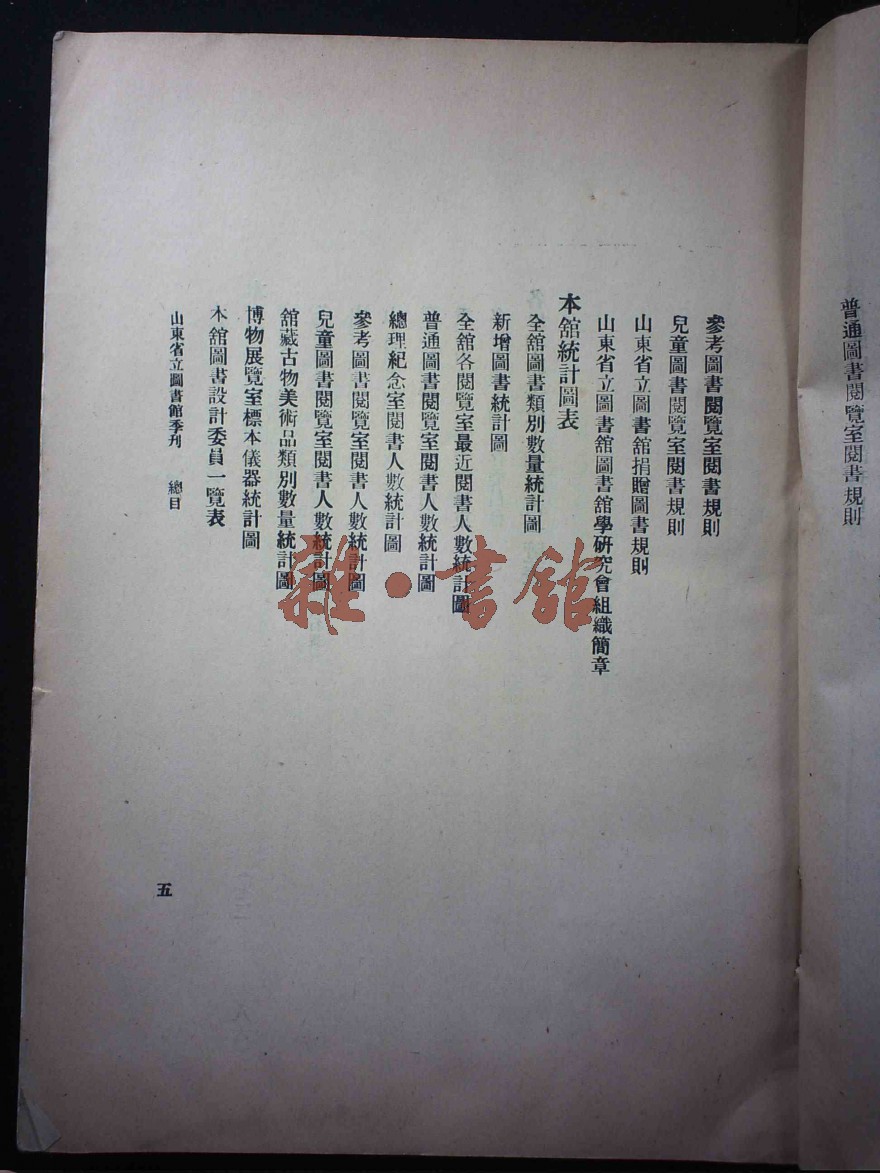 普通圖書閱覽室閱書規則
參考圖書閱覽室閱書規則
兒童圖書閱覽室閱書規則
山東省立圖書舘捐贈圖書規則
山東省立圖書舘圖書舘學硏究會組織簡章
本舘統計圖表
全舘圖書類別數量統計圖
新增圖書統計圖
全舘各閱覽室最近閱書人數統計圖
普通圖書閱覽室閱書人數統計圖
總理紀念室閱書人數統計圖
參考圖書閱覽室閱書人數統計圖
兒童圖書閱覽室閱書人數統計圖
舘藏古物美術品類別數量統計圖
博物展覽室標本儀器統計圖
本舘圖書設計委員一覽表
山東省立圖書館季刊 總目
五
雜·書館